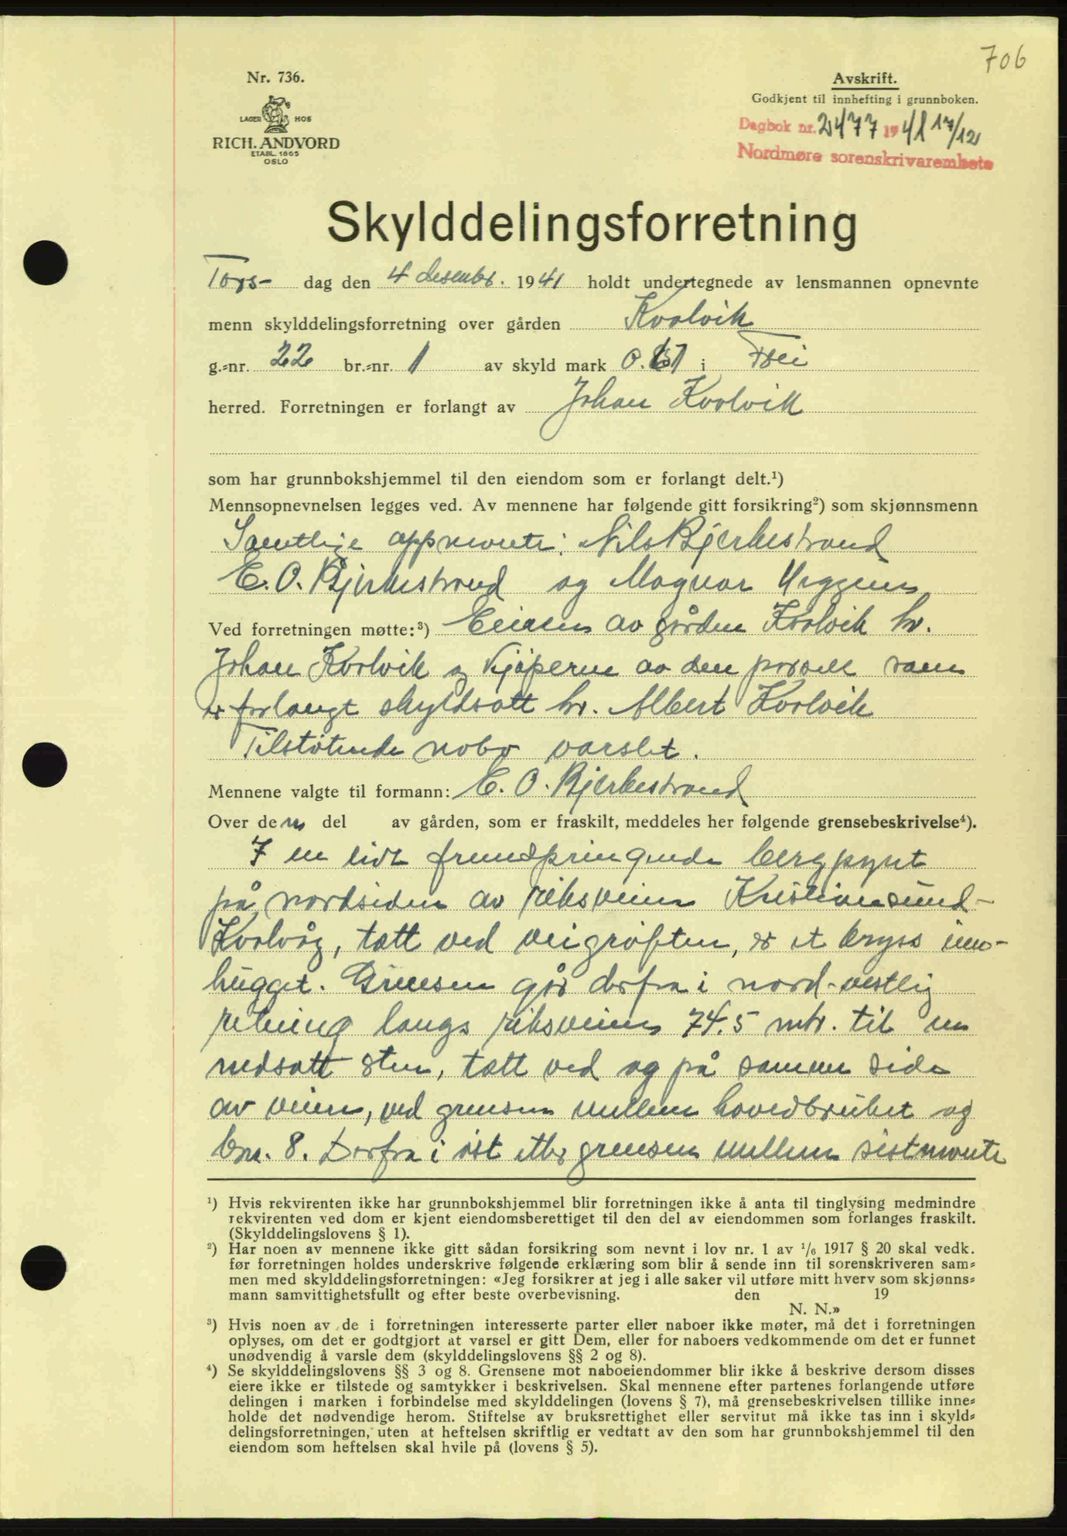 706
Nr. 736.
LAGER HOS
RICH. ANDVORD
ETABL. 1865
OSLO
Avskrift.
Godkjent til innhefting i grunnboken.
Dagbok nr. 2477 1941 17/12
Nordmøre sorenskriverembete
Skylddelingsforretning
Tors- dag den 4 desembr. 1941 holdt undertegnede av lensmannen opnevnte
menn skylddelingsforretning over gården Kvalvik
g.=nr. 22 br.=nr. 1 av skyld mark 0.61 i Frei
herred. Forretningen er forlangt av Johan Kvalvik
som har grunnbokshjemmel til den eiendom som er forlangt delt.¹)
Mennsopnevnelsen legges ved. Av mennene har følgende gitt forsikring²) som skjønnsmenn
Samtlige oppnevnte: Nils Bjerkestrand
E. O. Bjerkestrand og Magnar
Ved forretningen møtte:³) Eieren av gården Kvalvik hr.
Johan Kvalvik og kjøperen av den parsell som
er forlangt skyldsatt hr. Albert Kvalvik
Tilstøtende nabo varslet.
Mennene valgte til formann: E. O. Bjerkestrand
Over den del av gården, som er fraskilt, meddeles her følgende grensebeskrivelse⁴).
I en lidt fremspringende bergpynt
på nordsiden av riksveien Kristiansund-
Kvalvåg, tatt ved veigrøften, er et kryss inn-
hugget. Grensen går derfra i nord-vestlig
retning langs riksveien 74.5 mtr. til en
nedsatt sten, tatt ved og på samme side
av veien, ved grensen mellem hovedbruket og
bnr. 8. Derfra i øst etter grensen mellem sistnevnte
¹) Hvis rekvirenten ikke har grunnbokshjemmel blir forretningen ikke å anta til tinglysing medmindre
rekvirenten ved dom er kjent eiendomsberettiget til den del av eiendommen som forlanges fraskilt.
(Skylddelingslovens § 1).
²) Har noen av mennene ikke gitt sådan forsikring som nevnt i lov nr. 1 av ¹/₆ 1917 § 20 skal vedk.
før forretningen holdes underskrive følgende erklæring som blir å sende inn til sorenskriveren sam=
men med skylddelingsforretningen: «Jeg forsikrer at jeg i alle saker vil utføre mitt hverv som skjønns=
mann samvittighetsfullt og efter beste overbevisning. den 19
N. N.»
³) Hvis noen av de i forretningen interesserte parter eller naboer ikke møter, må det i forretningen
oplyses, om det er godtgjort at varsel er gitt Dem, eller for naboers vedkommende om det er funnet
unødvendig å varsle dem (skylddelingslovens §§ 2 og 8).
⁴) Se skylddelingslovens §§ 3 og 8. Grensene mot naboeiendommer blir ikke å beskrive dersom disses
eiere ikke er tilstede og samtykker i beskrivelsen. Skal mennene efter partenes forlangende utføre
delingen i marken i forbindelse med skylddelingen (lovens § 7), må grensebeskrivelsen tillike inne=
holde det nødvendige herom. Stiftelse av bruksrettighet eller servitut må ikke tas inn i skyld=
delingsforretningen, uten at heftelsen skriftlig er vedtatt av den som har grunnbokshjemmel til den
eiendom som heftelsen skal hvile på (lovens § 5).